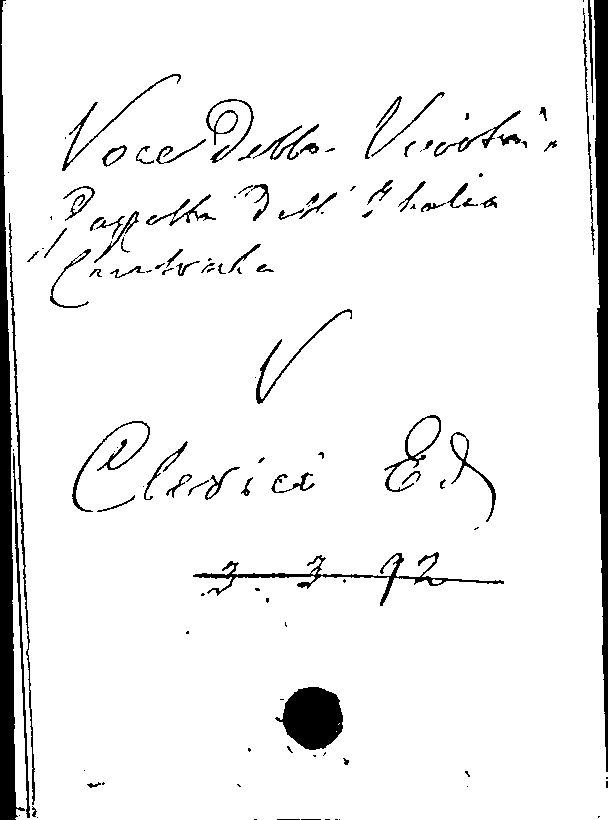 Voce Della Verità
Gazzetta Dell' Italia
Centrale
V
Clerici Ed
3. 3. 92